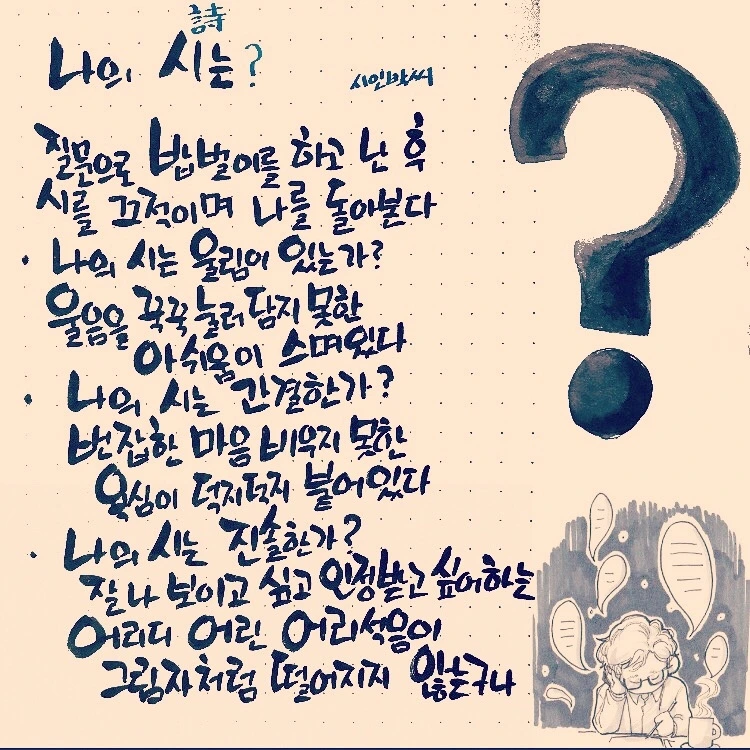 詩
나의 시는?
시인박씨
질문으로 밥벌이를 하고 난 후
시를 끄적이며 나를 돌아본다
· 나의 시는 울림이 있는가?
울음을 꾹꾹 눌러 담지 못한
아쉬움이 스며있다
· 나의 시는 간결한가?
번잡한 마음 비우지 못한
욕심이 덕지덕지 붙어있다
· 나의 시는 진솔한가?
잘나 보이고 싶고 인정받고 싶어하는
어리디 어린 어리석음이
그림자처럼 떨어지지 않는구나
?